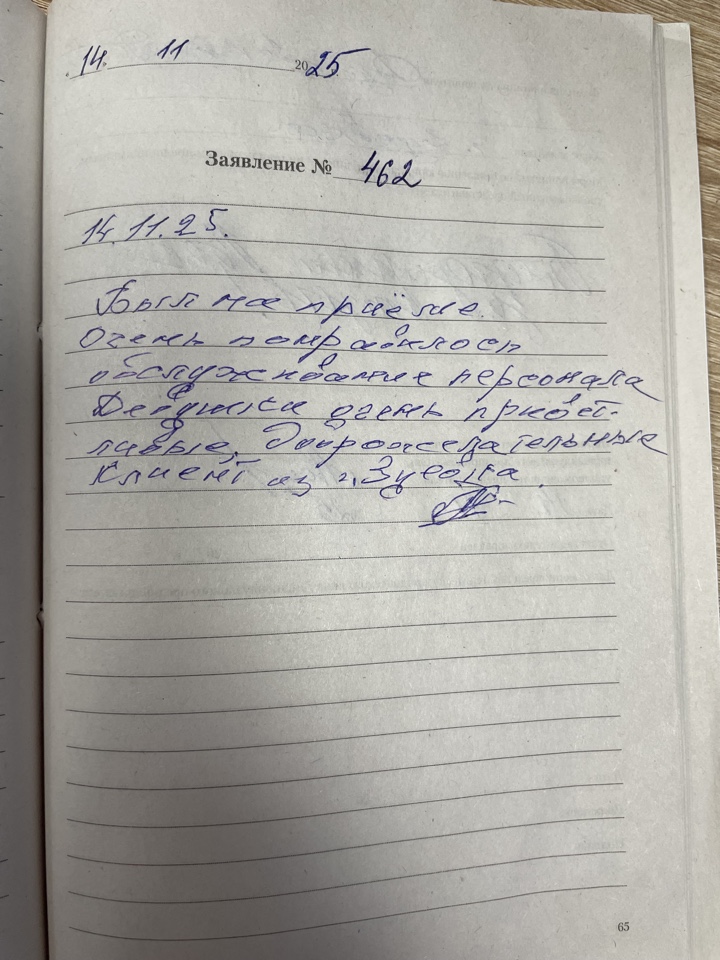 14. 11 2025
Заявление № 462
14.11.25.
Был на приёме.
Очень понравилось
обслуживание персонала
Девушки очень привет-
ливые, доброжелательные
Клиент из г.
65